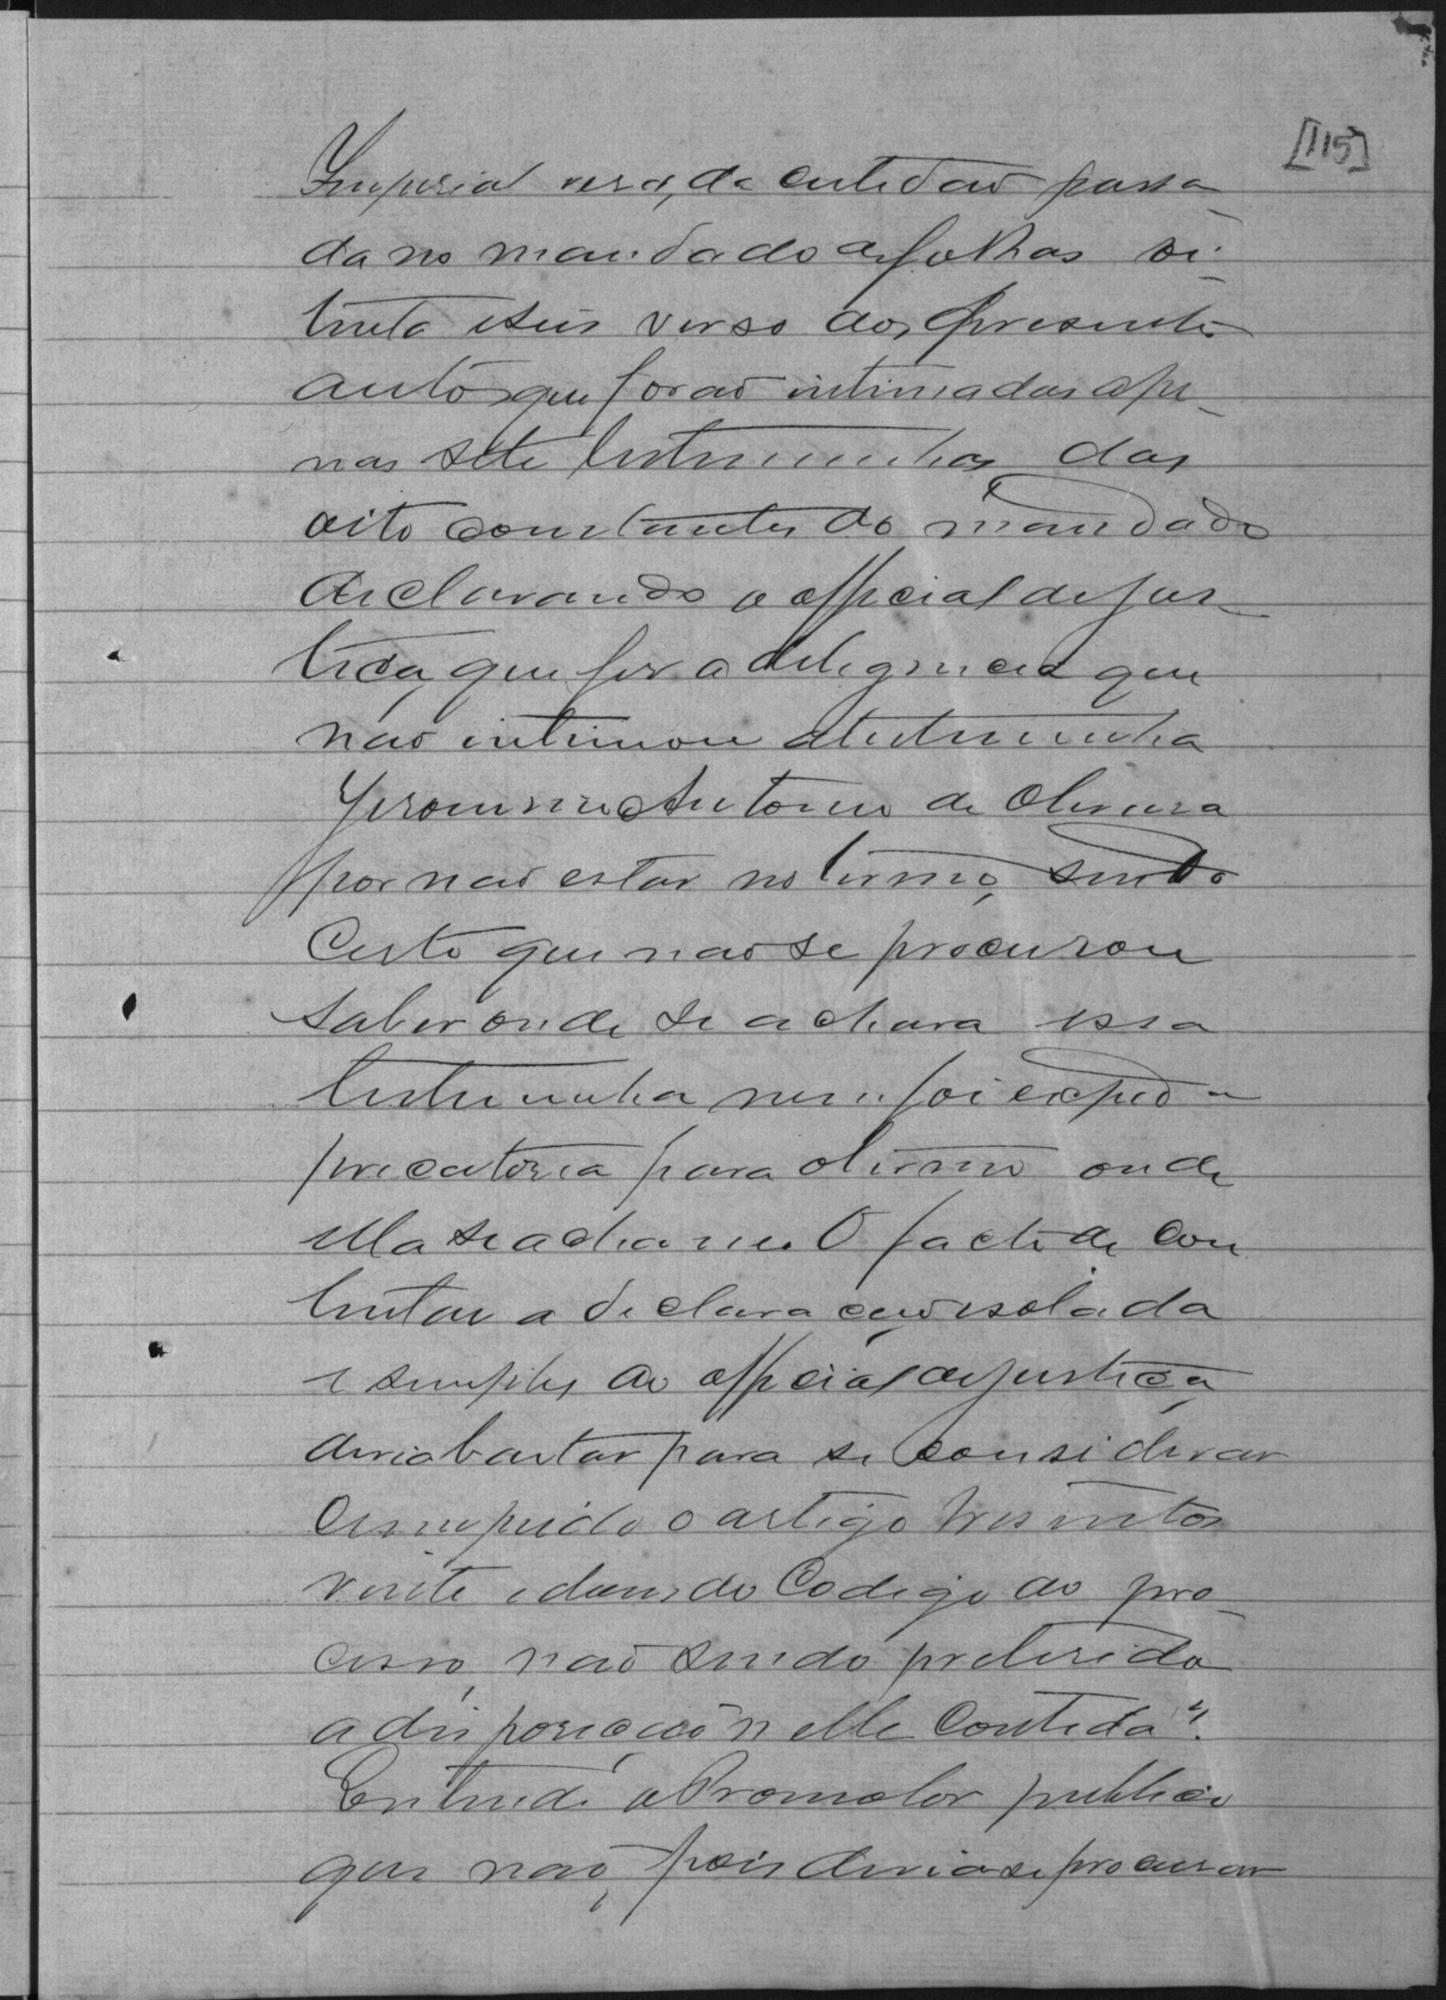 [115]
Imperial verá, da certidão passa-
da no mandado a folhas
trinta e seis verso dos presentes
autos que forão intimadas ape-
nas sete testemunhas das
oito constantes do mandado
declarando o official de jus-
tiça, que fez a deligencia que
não intimou a testemunha
Jeronimo Antonio de Oliveira
por não estar no termo, sendo
certo que não se procurou
saber onde se achava essa
testemunha nem foi expedida
precatoria para o termo onde
ella se achasse. O facto de con
tentar a declaração isolada
e simples do official de justiça,
devia bastar para se considerar
cumprido o artigo tresentos
vinte e dous do Codigo do pro-
cesso, não sendo preterida
a disposição n'elle contida".
Entende o Promotor publico
que não, pois devia se procurar